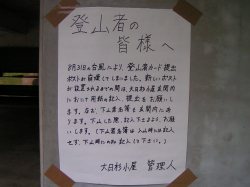 登山者の
皆様へ
8月31日の台風により、登山者カード提出
ポストが崩壊してしまいました。新しいポスト
が設置されるまでの間は、大日杉小屋玄関内
において用紙の記入、提出をお願い
します。なお、下山者名簿も玄関内にあ
ります。下山した際、記入下さるよう、お願い
します。(下山者名簿は入山時には記入
せず、下山時にのみ記入して下さい。)
大日杉小屋 管理人